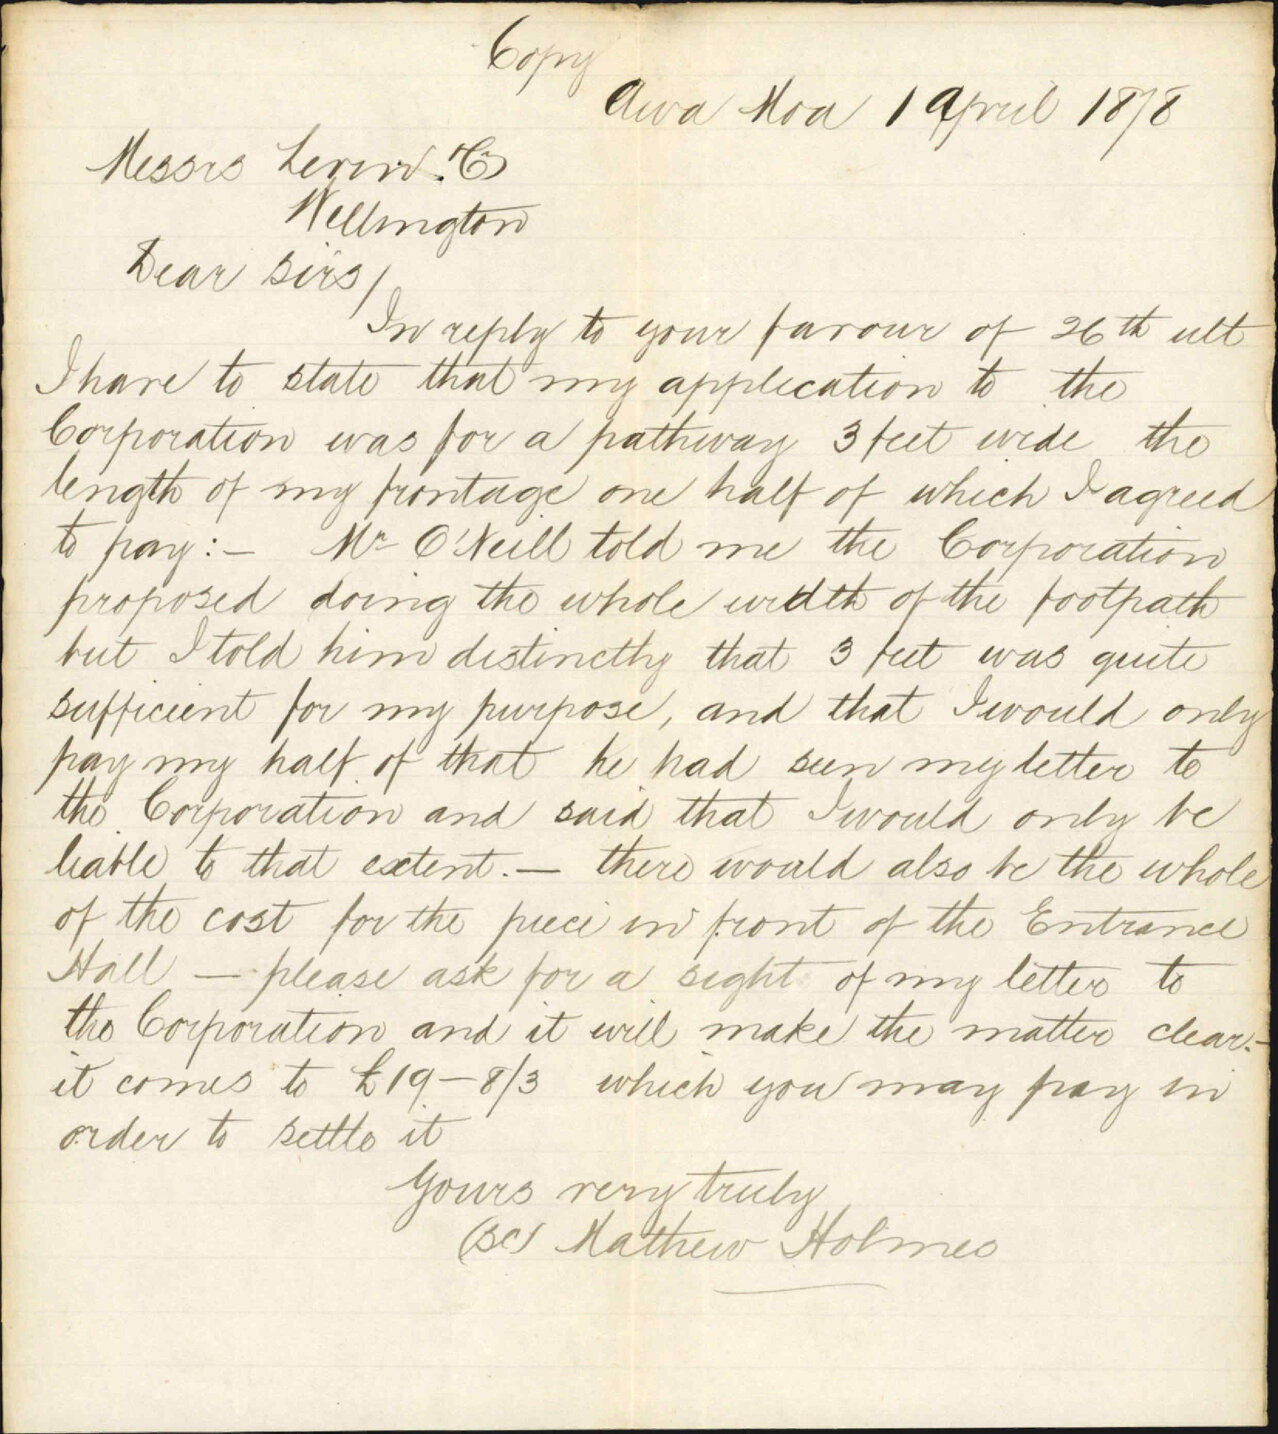 Copy
Awa Moa 1 April 1878
Messrs Levin & Co
Wellington
Dear Sirs/
In reply to your favour of 26th ult
I have to state that my application to the
Corporation was for a pathway 3 feet wide the
length of my frontage one half of which I agreed
to pay:— Mr O'Neill told me the Corporation
proposed doing the whole width of the footpath
but I told him distinctly that 3 feet was quite
sufficient for my purpose, and that I would only
pay my half of that he had seen my letter to
the Corporation and said that I would only be
liable to that extent.— there would also be the whole
of the cost for the piece in front of the Entrance
Hall — please ask for a sight of my letter to
the Corporation and it will make the matter clear:—
it comes to £19–8/3 which you may pay in
order to settle it
Yours very truly
Mathew Holmes